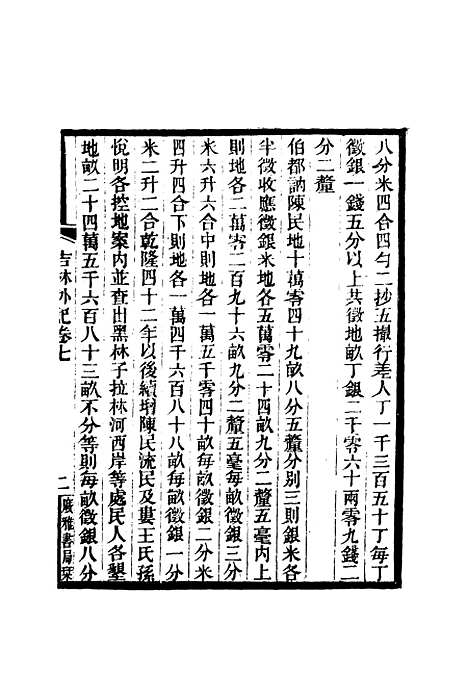 八分米四合四勺二抄五撮行差人丁一千三百五十丁每丁
徵銀一錢五分以上共徵地畝丁銀二千零六十兩零九錢二
分二釐
伯都訥陳民地十萬零四十九畝八分五釐分别三則銀米各
半徵收應徵銀米地各五萬零二十四畝九分二釐五毫內上
則地各二萬零二百九十六畝九分二釐五毫每畝徵銀三分
米六升六合中則地各一萬五千零四十畝每畝徵銀二分米
四升四合下則地各一萬四千六百八十八畝每畝徵銀一分
米二升二合乾隆四十二年以後續增陳民流民及婁王氏孫
悅明各控地案內並查出黑林子拉林河西岸等處民人各墾
地畝二十四萬五千六百八十三畝不分等則每畝徵銀八分
吉林外記卷七
二
廣雅書局栞